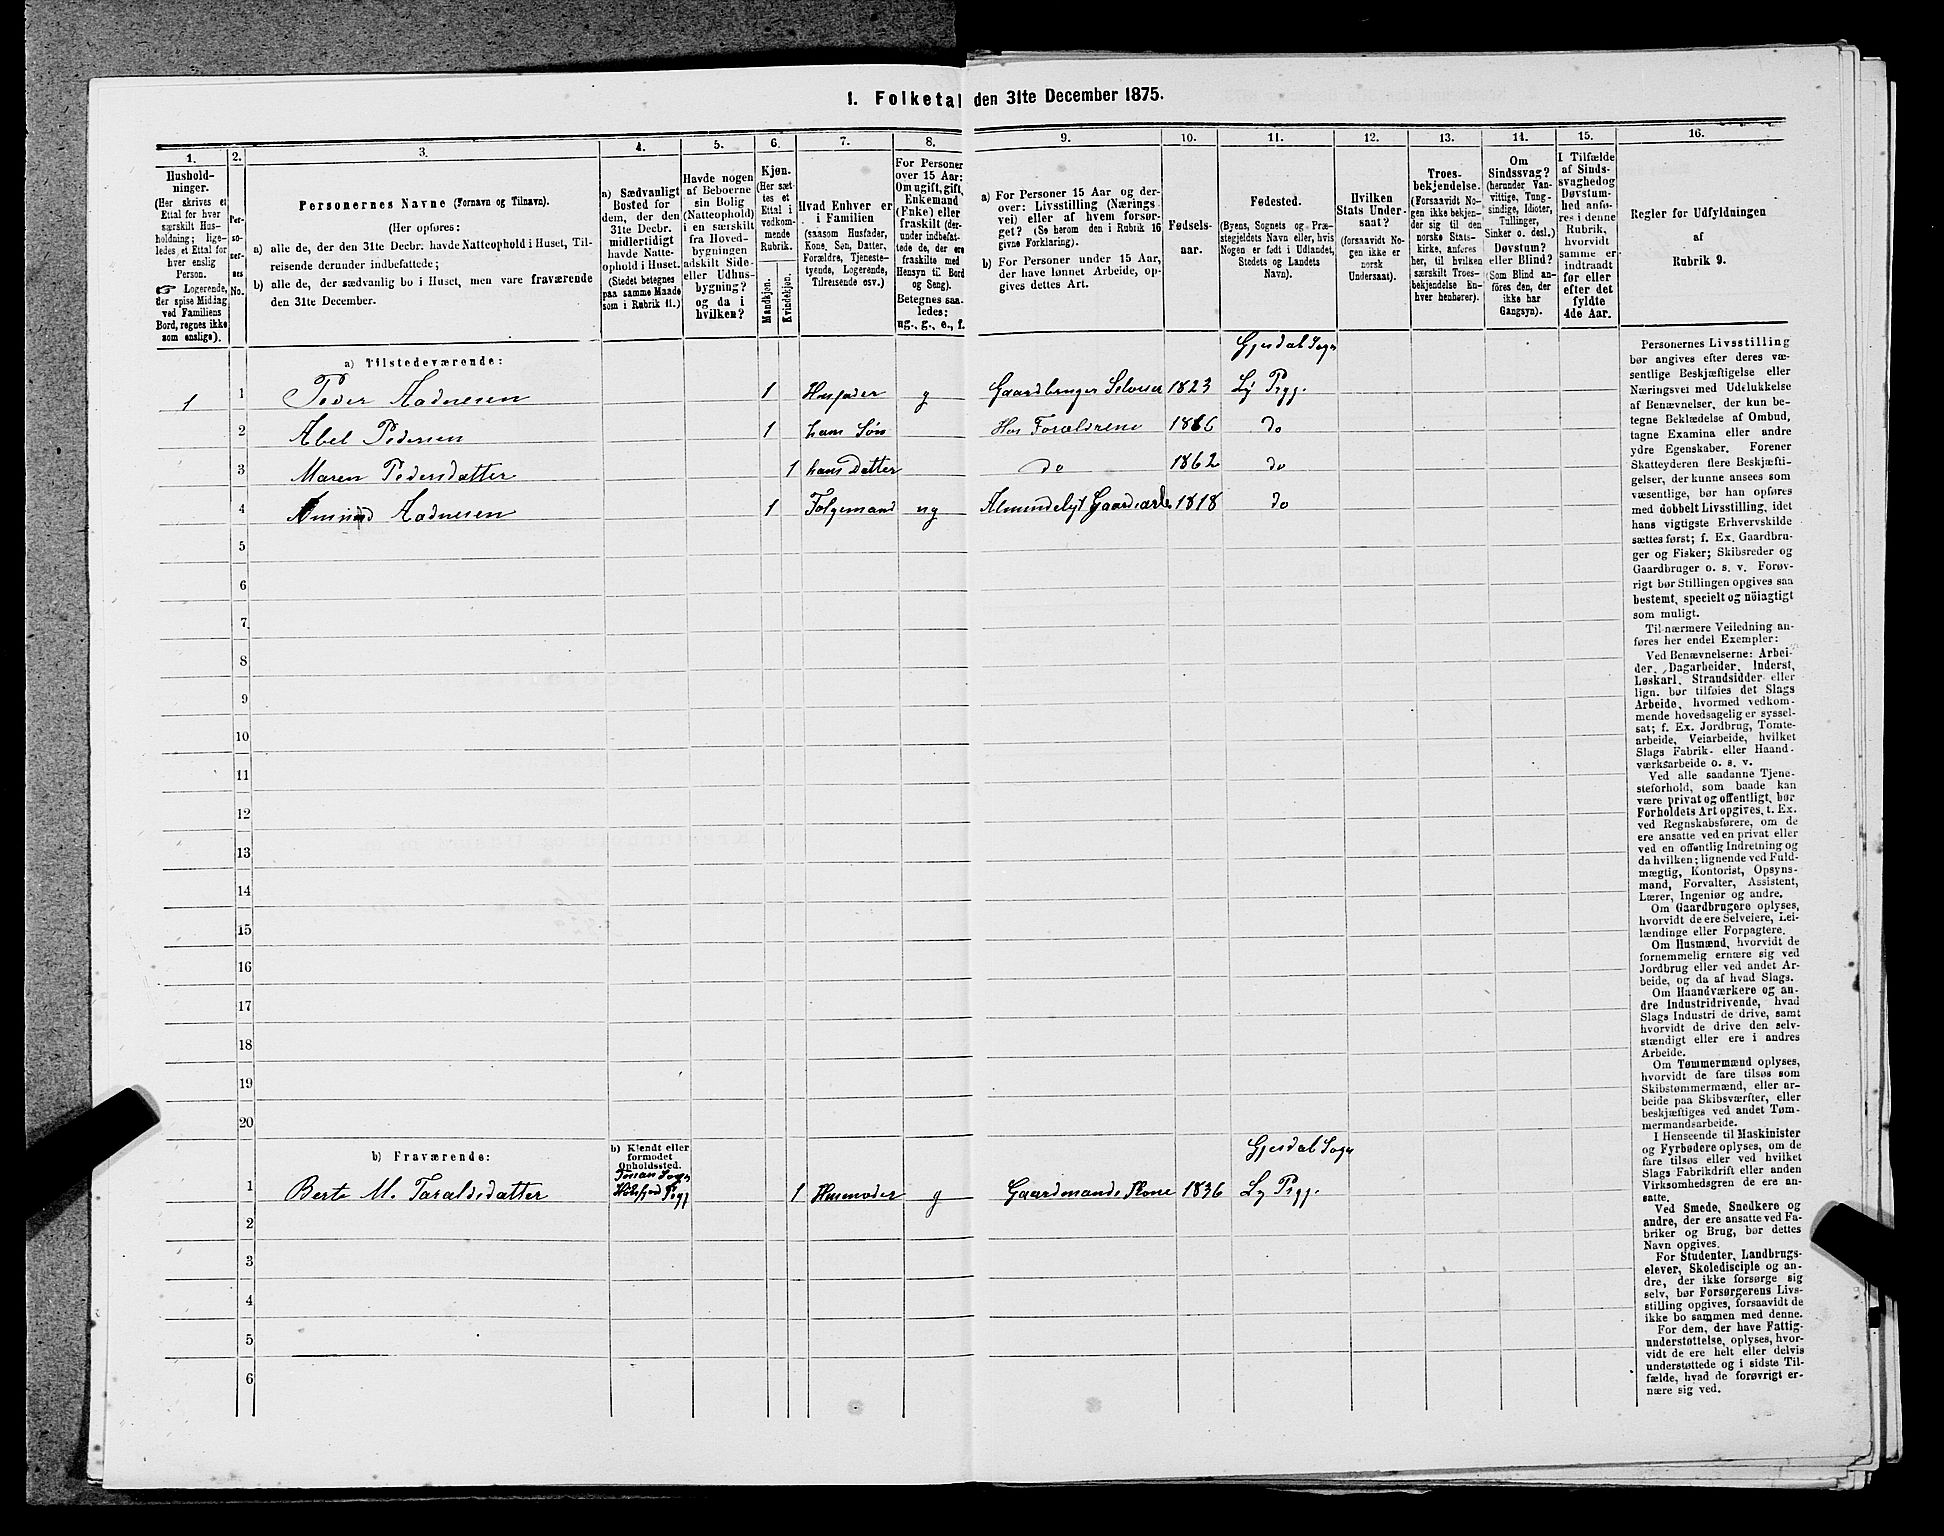 1. Folketal den 31te December 1875.
1.
Hushold-
ninger.
(Her skrives et
Ettal for hver
særskilt Hus-
holdning; lige-
ledes et Ettal for
hver enslig
Person.
☞ Logerende,
der spise Middag
ved Familiens
Bord, regnes ikke
som enslige).
2.
Per-
so-
ner-
nes
No.
3.
Personernes Navne (Fornavn og Tilnavn).
(Her opføres:
a) alle de, der den 31te Decbr. havde Natteophold i Huset, Til-
reisende derunder indbefattede;
b) alle de, der sædvanlig bo i Huset, men vare fraværende
den 31te December.
4.
a) Sædvanligt
Bosted for
dem, der den
31te Decbr.
midlertidigt
havde Natte-
ophold i Huset.
(Stedet betegnes
paa samme Maade
som i Rubrik 11.)
5.
Havde nogen
af Beboerne
sin Bolig
(Natteophold)
i en særskilt
fra Hoved-
bygningen
adskilt Side-
eller Udhus-
bygning?
og da i
hvilken?
6.
Kjøn.
(Her sæt-
tes et
Ettal i
vedkom-
mende
Rubrik.
Mandkjøn.
Kvindekjøn.
7.
Hvad Enhver er
i Familien
(saasom Husfader,
Kone, Søn, Datter,
Forældre, Tjeneste-
tyende, Logerende,
Tilreisende osv.)
8.
For Personer
over 15 Aar:
Om ugift, gift,
Enkemand
(Enke) eller
fraskilt (der-
under indbefat-
tede de, der ere
fraskilte med
Hensyn til Bord
og Seng).
Betegnes saa-
ledes:
ug., g., e., f.
9.
a) For Personer 15 Aar og der-
over: Livsstilling (Nærings-
vei) eller af hvem forsør-
get? (Se herom den i Rubrik 16
givne Forklaring).
b) For Personer under 15 Aar,
der have lønnet Arbeide, op-
gives dettes Art.
10.
Fødsels-
aar.
11.
Fødested.
(Byens, Sognets og Præ-
stegjeldets Navn eller, hvis
Nogen er født i Udlandet,
Stedets og Landets
Navn).
12.
Hvilken
Stats Under-
saat?
(forsaavidt No-
gen ikke er
norsk
Undersaat).
13.
Troes-
bekjendelse.
(Forsaavidt No-
gen ikke bekjen-
der sig til den
norske Stats-
kirke, anføres
her, til hvilken
særskilt Troes-
bekjendelse En-
hver henhører).
14.
Om
Sindssvag?
(herunder Van-
vittige, Tung-
sindige, Idioter,
Tullinger,
Sinker o. desl.)
Døvstum?
eller Blind?
(Som Blind an-
føres den, der
ikke har
Gangsyn).
15.
I Tilfælde
af Sinds-
svaghed og
Døvstum-
hed anfø-
res i denne
Rubrik,
hvorvidt
samme er
indtraadt
før eller
efter det
fyldte
4de Aar.
16.
Regler for Udfyldningen
af
Rubrik 9.
a) Tilstedeværende:
Gjesdal Sogn
1 1 Peder Aadnesen 1 Husfader g Gaardbruger Selveier 1823 Ly Prgj.
2 Abel Pedersen 1 hans Søn Hos Forældrene 1866 do
3 Maren Pedersdatter 1 hans Datter do 1862 do
4 Amund Aadnesen 1 Følgemand ug Almindeligt Gaardsarb. 1818 do
5
6
7
8
9
10
11
12
13
14
15
16
17
18
19
20
b) Fraværende:
b) Kjendt eller
formodet
Opholdssted.
Gjesdal Sogn
1 Berte M. Taraldsdatter Sogn Prgj 1 Husmoder g Gaardmands Kone 1836 Ly Prgj.
2
3
4
5
6
Personernes Livsstilling
bør angives efter deres væ-
sentlige Beskjæftigelse eller
Næringsvei med Udelukkelse
af Benævnelser, der kun be-
tegne Beklædelse af Ombud,
tagne Examina eller andre
ydre Egenskaber. Forener
Skatteyderen flere Beskjæfti-
gelser, der kunne ansees som
væsentlige, bør han opføres
med dobbelt Livsstilling, idet
hans vigtigste Erhvervskilde
sættes først; f. Ex. Gaardbru-
ger og Fisker; Skibsreder og
Gaardbruger o. s. v. Forøv-
rigt bør Stillingen opgives saa
bestemt, specielt og nöiagtigt
som muligt.
Til nærmere Veiledning an-
føres her endel Exempler:
Ved Benævnelserne: Arbei-
der, Dagarbeider, Inderst,
Løskarl, Strandsidder eller
lign. bør tilføies det Slags
Arbeide, hvormed vedkom-
mende hovedsagelig er syssel-
sat; f. Ex. Jordbrug, Tomte-
arbeide, Veiarbeide, hvilket
Slags Fabrik- eller Haand-
værksarbeide o. s. v.
Ved alle saadanne Tjene-
steforhold, som baade kan
være privat og offentligt, bør
Forholdets Art opgives, t. Ex.
ved Regnskabsførere, om de
ere ansatte ved en privat eller
ved en offentlig Indretning og
da hvilken; lignende ved Fuld-
mægtig, Kontorist, Opsyns-
mand, Forvalter, Assistent,
Lærer, Ingeniør og andre.
Om Gaardbrugere oplyses,
hvorvidt de ere Selveiere, Lei-
lændinge eller Forpagtere.
Om Husmænd, hvorvidt de
fornemmelig ernære sig ved
Jordbrug eller ved andet Ar-
beide, og da af hvad Slags.
Om Haandværkere og an-
dre Industridrivende, hvad
Slags Industri de drive, samt
hvorvidt de drive den selv-
stændigt eller ere i andres
Arbeide.
Om Tømmermænd oplyses,
hvorvidt de fare tilsøs som
Skibstømmermænd, eller ar-
beide paa Skibsværfter, eller
beskjæftiges ved andet Tøm-
mermandsarbeide.
I Henseende til Maskinister
og Fyrbødere oplyses, om de
fare tilsøs eller ved hvilket
Slags Fabrikdrift eller anden
Virksomhedsgren de ere an-
satte.
Ved Smede, Snedkere og
andre, der ere ansatte ved Fa-
briker og Brug, bør dettes
Navn opgives.
For Studenter, Landbrugs-
elever, Skoledisciple og an-
dre, der ikke forsørge sig
selv, bør Forsørgerens Livs-
stilling opgives, forsaavidt de
ikke bo sammen med denne.
For dem, der have Fattig-
understøttelse, oplyses, hvor-
vidt de ere helt eller delvis
understøttede og i sidste Til-
fælde, hvad de forøvrigt er-
nære sig ved.